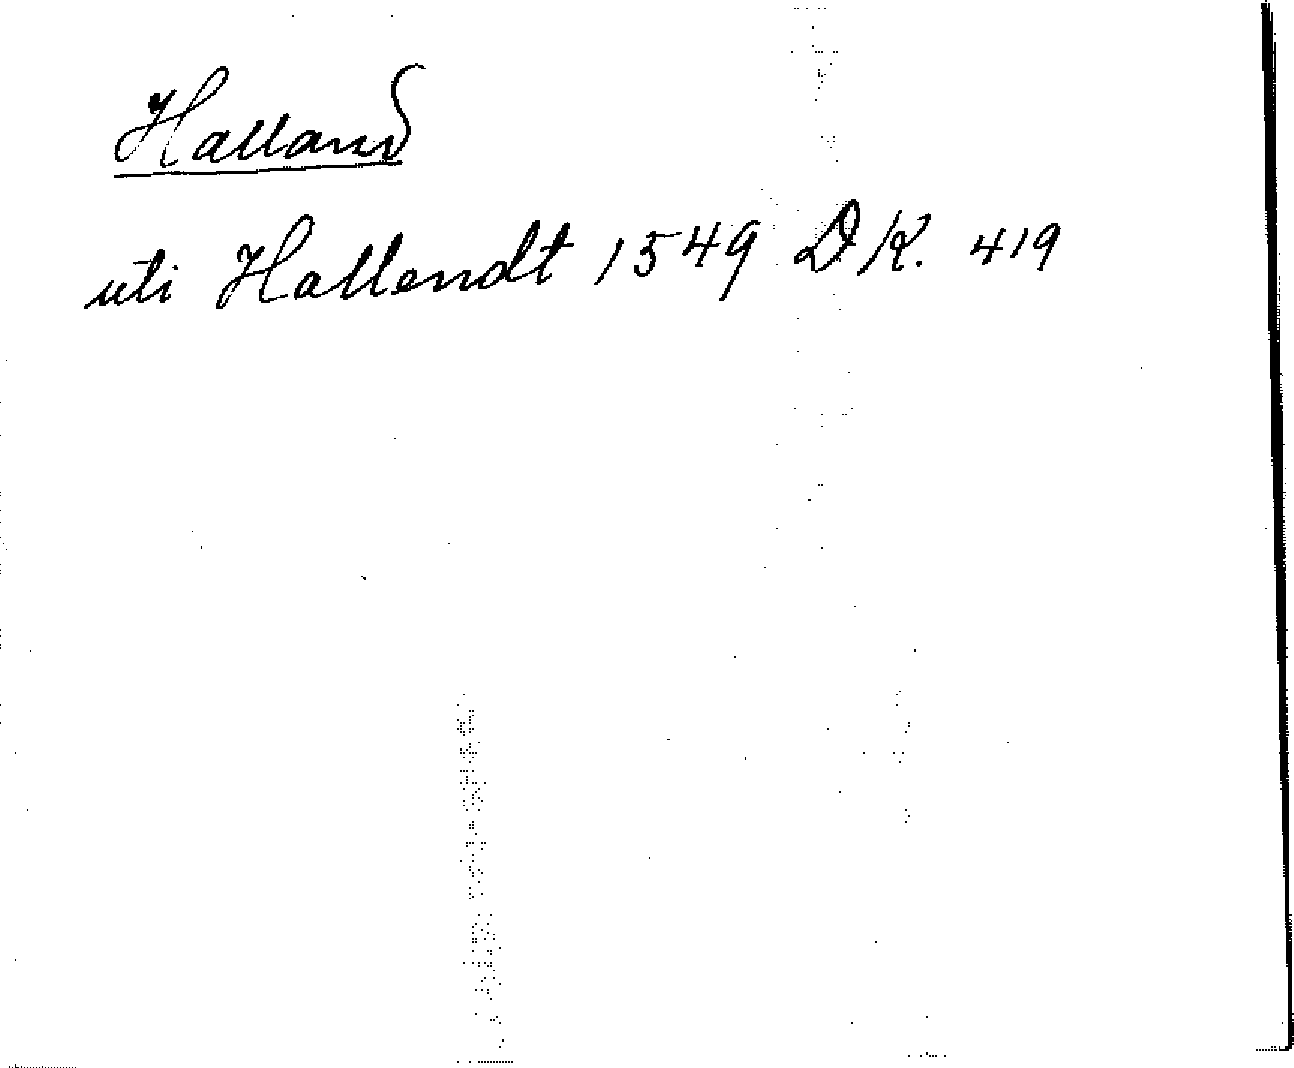 Halland
uti Hallendt 1549 DK. 419